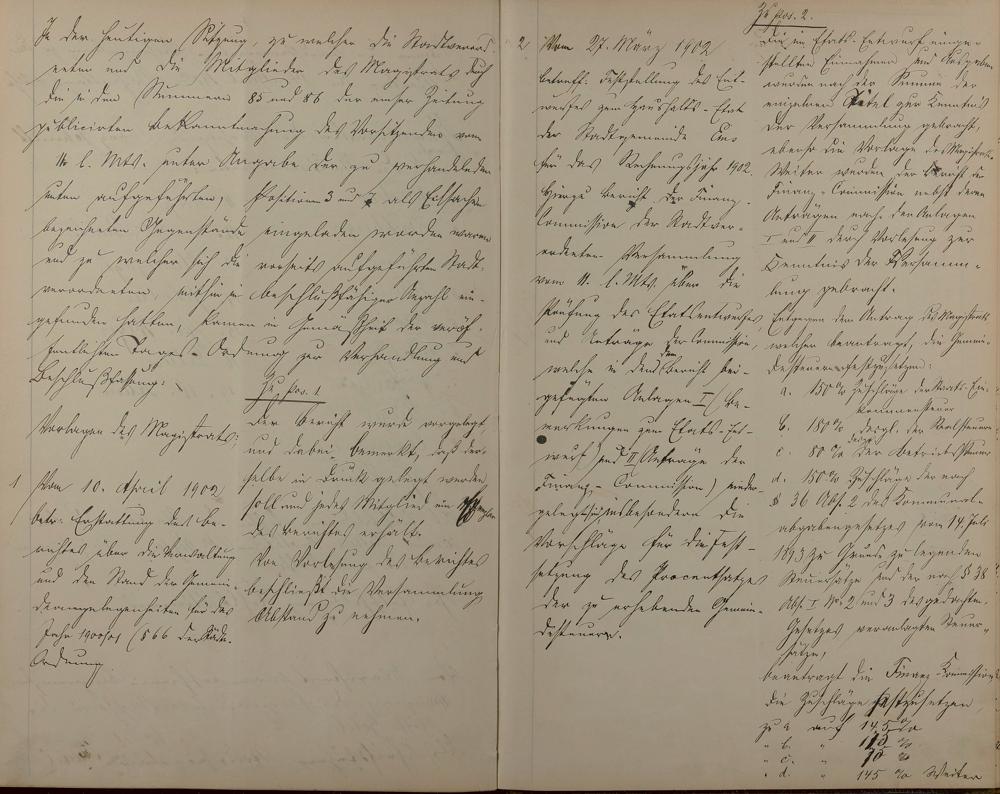 In der heutigen Sitzung, zu welcher die Stadtverord-
neten und die Mitglieder des Magistrats durch
die in den Nummern 85 und 86 der Emser Zeitung
publicirten Bekanntmachung des Vorsitzenden vom
11 l. Mts. unter Angabe der zu verhandelnden
unten aufgeführten, Position 3 und 7 als Eilsachen
bezeichneten Gegenstände eingeladen worden waren
und zu welcher sich die vorseits aufgeführten Stadt-
verordneten, mithin in beschlußfähiger Anzahl ein-
gefunden hatten, kamen in Gemäßheit der veröf-
fentlichten Tages-Ordnung zur Verhandlung und
Beschlußfassung:
Vorlagen des Magistrats:
1
Vom 10. April 1902
betr: Erstattung des Be-
richtes über die Verwaltung
und den Stand der Gemein-
deangelegenheiten für das
Jahr 1900/01 (§ 66 der Städte-
Ordnung
Zu pos. 1
Der Bericht wurde vorgelegt
und dabei bemerkt, daß der-
selbe in Druck gelegt werden
soll und jedes Mitglied ein
des Berichtes erhält.
Von Vorlesung des Berichtes
beschließt die Versammlung
Abstand zu nehmen.
2
Vom 27. März 1902
betreff: Feststellung des Ent-
wurfes zum Haushalts-Etat
der Stadtgemeinde Ems
für das Rechnungsjahr 1902.
Hierzu Bericht der Finanz-
Commission der Stadtver-
ordneten-Versammlung
vom 11. l. Mts. über die
Prüfung des Etatsentwurfes,
und Anträge der Commission,
welche in den dem Bericht bei-
gefügten Anlagen I (Be-
merkungen zum Etats-Ent-
wurf) und II (Anträge der
Finanz-Commission) nieder-
gelegt sind, insbesondere die
Vorschläge für die Fest-
setzung des Procentsatzes
der zu erhebenden Gemein-
desteuern.
Zu pos. 2.
Die im Etats-Entwurf einge-
stellten Einnahmen und Ausgaben
wurden nach der Summe der
einzelnen Titel zur Kenntniß
der Versammlung gebracht,
ebenso die Vorlage des Magistrats.
Weiter wurden der Bericht der
Finanz-Commission nebst deren
Anträgen nach den Anlagen
I und II durch Vorlesung zur
Kenntnis der Versamm-
lung gebracht.
Entgegen dem Antrag des Magistrats
welcher beantragt, die Gemein-
desteuern festzusetzen:
a. 150 % Zuschläge der Staats-Ein-
kommensteuer
b. 180 % desgl. der Realsteuern
c. 80 % der Betriebssteuer
d. 150 % Zuschläge der nach
§ 36 Abs. 2 des Kommunal-
abgabengesetzes vom 14. Juli
1893 zu Grund zu legenden
Steuersätze und der nach § 38
Abs. I No. 2 und 3 des gedachten
Gesetzes veranlagten Steuer-
sätze,
beantragt die Finanz-Kommission
die Zuschläge festzusetzen
zu a auf 145 %
" b. "
" c. " 70 %
" d. " 145 % Weiter